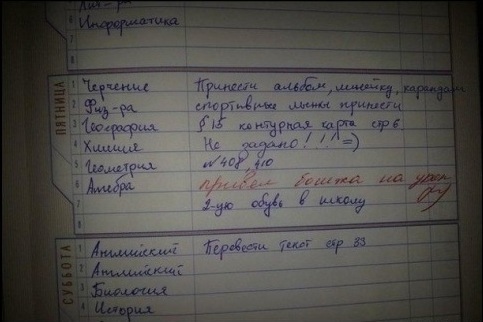 Лит-ра
Информатика
7
8
ПЯТНИЦА
1 Черчение Принести альбом, линейку, карандаш
2 Физ-ра спортивные лыжы принести
3 География § 15 контурная карта стр 6
4 Химия Не задано! !!! =)
5 Геометрия № 408, 410
6 Алгебра привёл бошка на урок
7 2-ую обувь в школу
8
СУББОТА
1 Английский Перевести текст стр 33
2 Английский
3 Биология
4 История